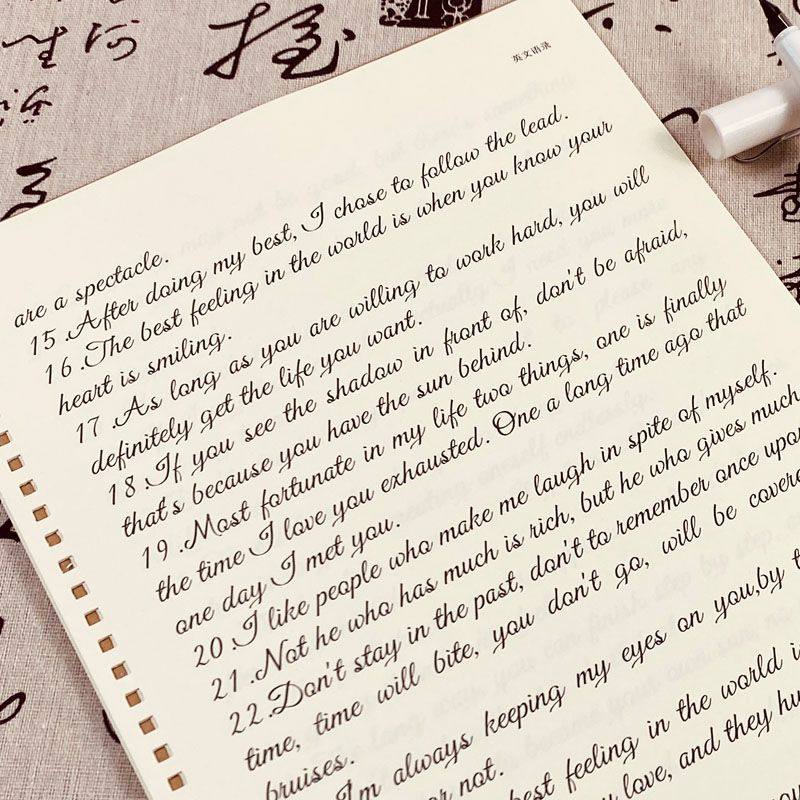 英文语录
are a spectacle.
15.After doing my best, I chose to follow the lead.
16.The best feeling in the world is when you know your
heart is smiling.
17.As long as you are willing to work hard, you will
definitely get the life you want.
18.If you see the shadow in front of, don't be afraid,
that's because you have the sun behind.
19.Most fortunate in my life two things, one is finally
the time I love you exhausted. One a long time ago that
one day I met you.
20.I like people who make me laugh in spite of myself.
21.Not he who has much is rich, but he who gives much
22.Don't stay in the past, don't to remember once upon
time, time will bite, you don't go, will be covere
bruises.
I'm always keeping my eyes on you,by t
or not.
best feeling in the world i
y love, and they hu